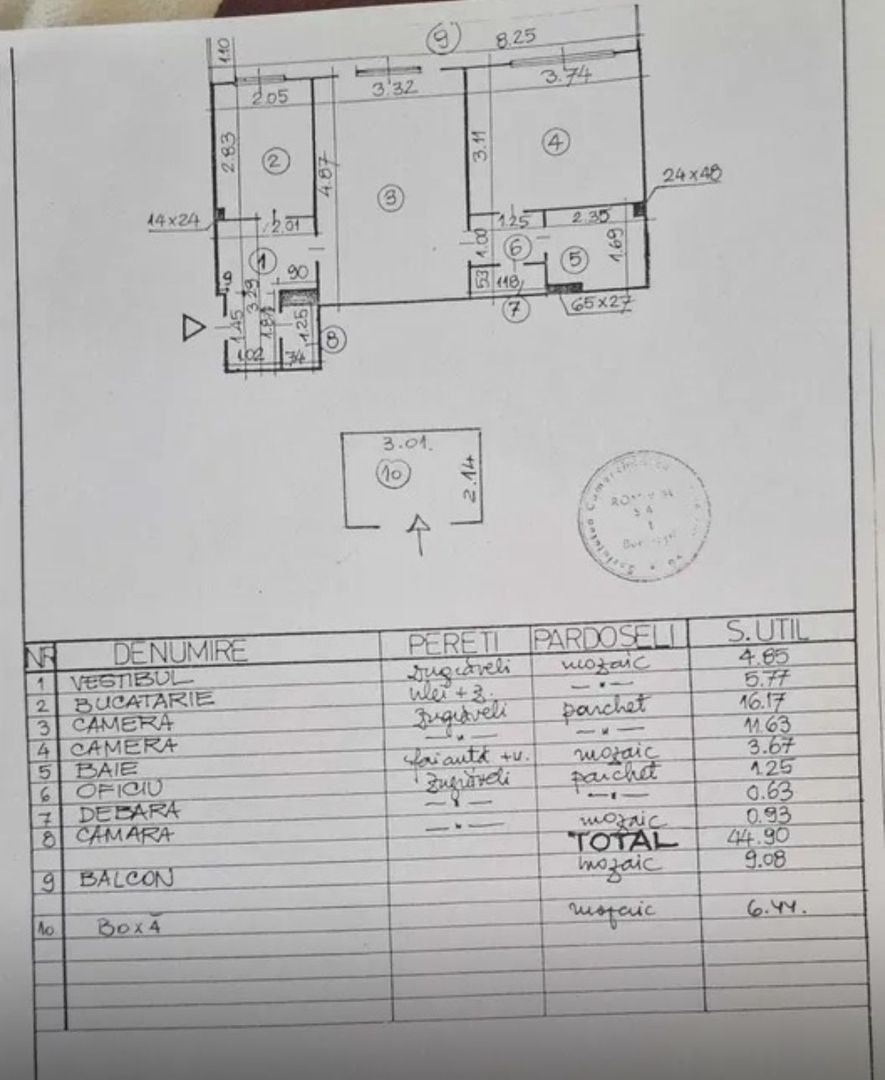 9
8.25
1.10
2.05
3.32
3.74
2.83
2
4.87
3
3.11
4
24x48
14x24
2.01
1.25
2.35
1
1.00
6
5
1.69
90
3.29
53
118
7
65x27
1.45
1.84
1.25
8
1.02
74
3.01.
10
2.14
NR DENUMIRE PERETI PARDOSELI S.UTIL
1 VESTIBUL zugrăveli mozaic 4.85
2 BUCATARIE ulei + z. — " — 5.77
3 CAMERA zugrăveli parchet 16.17
4 CAMERA — " — — " — 11.63
5 BAIE faianta +u. mozaic 3.67
6 OFICIU zugrăveli parchet 1.25
7 DEBARA — " — — " — 0.63
8 CAMARA — " — mozaic 0.93
TOTAL 44.90
9 BALCON mozaic 9.08
10 BOXĂ mozaic 6.44.